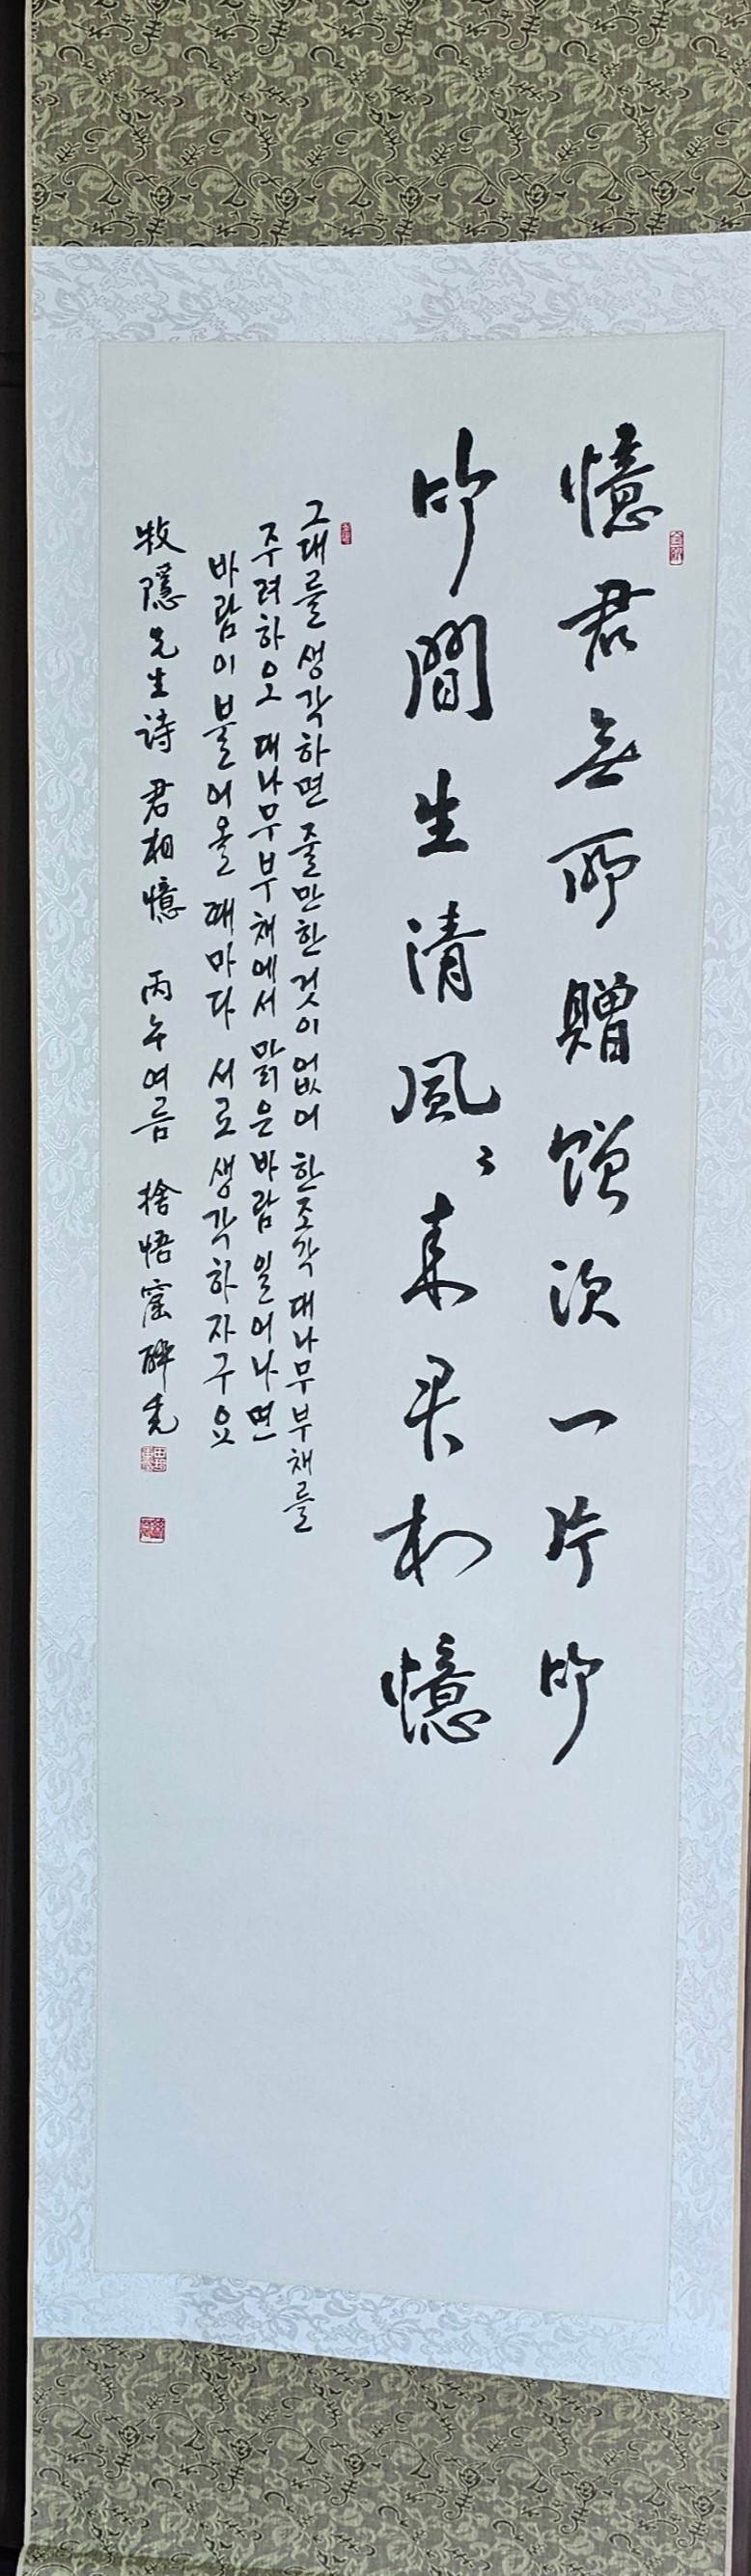 憶君無所贈贈次一片竹
竹間生清風〻来君相憶
그대를 생각하면 줄만한것이 없어 한조각 대나무부채를
주려하오 대나무부채에서 맑은바람 일어나면
바람이 불어올 때마다 서로 생각하자구요
牧隱先生詩 君相憶 丙午여름 捨悟窟酔